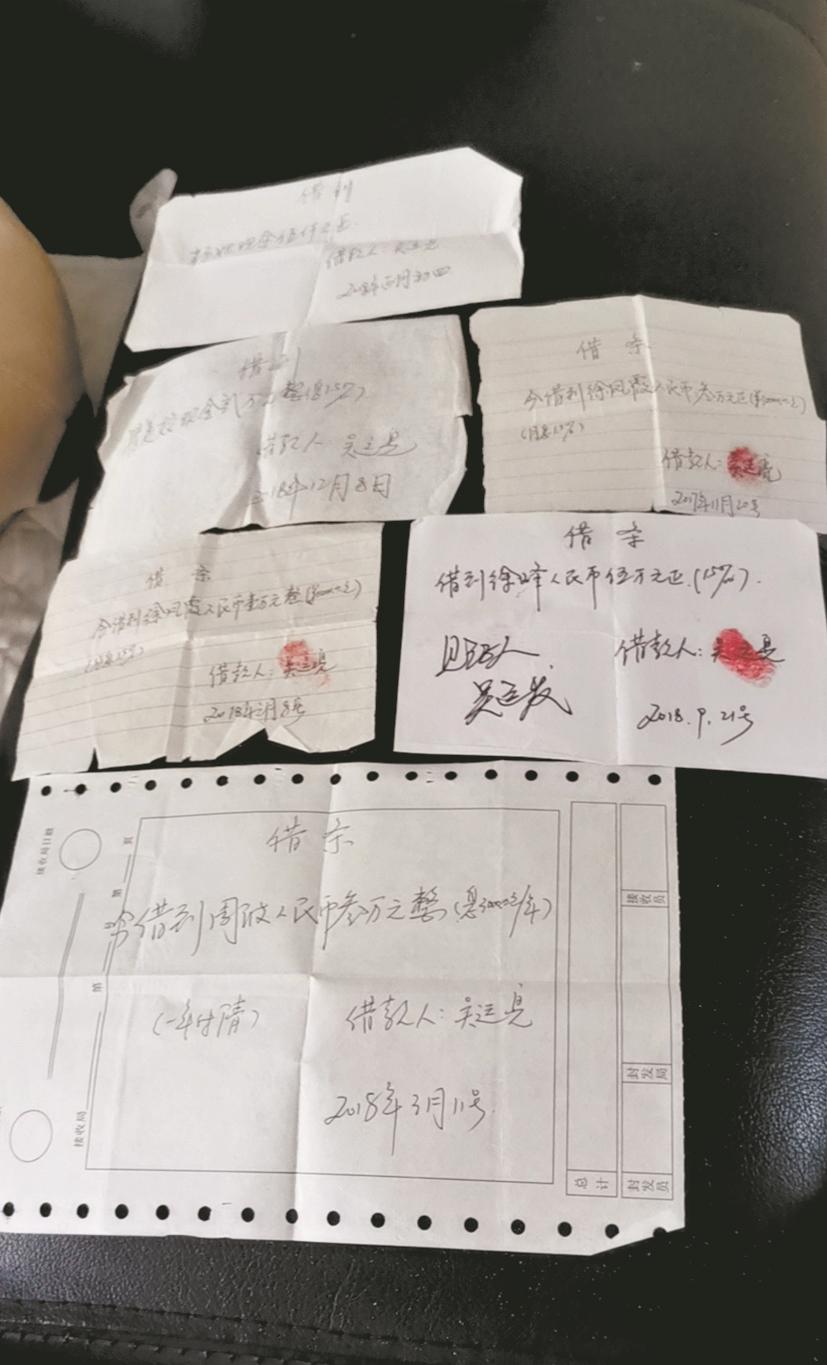 借到
现金伍仟元正
借款人:吴运亮
借到
现金
万元整(息15%)
借款人 吴运亮
2018年12月8日
借条
今借到徐凤霞人民币叁万元正(¥30000元)
(月息15%)
借款人:吴运亮
2017年11月20号
借条
今借到徐凤霞人民币壹万元整
(月息15%)
借款人:吴运亮
2018年 月8号
借条
借到徐峰人民币伍万元正.(15%).
借款人:吴运亮
吴运发
2018.9.21号
借条
今借到周波人民币叁万元整(息3000元/年)
(一年付清)
借款人:吴运亮
2018年3月11号
接收局日戳
第
页
第
接收局
接收员
封发局
总计
封发员